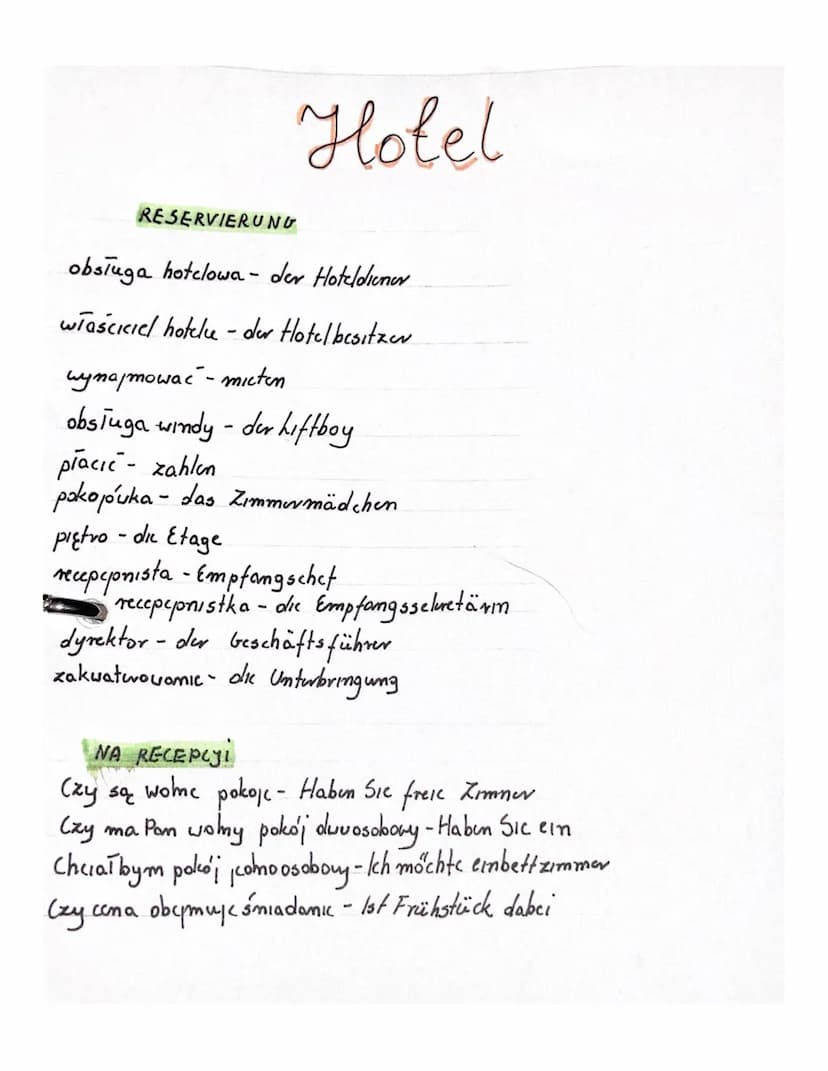 Hotel
RESERVIERUNG
obsługa hotelowa - der Hoteldiener
właściciel hotelu - der Hotelbesitzer
wynajmować - mieten
obsługa windy - der Liftboy
płacić - zahlen
pokojówka - das Zimmermädchen
piętro - die Etage
recepcjonista - Empfangschef
recepcjonistka - die Empfangssekretärin
dyrektor - der Geschäftsführer
zakwaterowanie - die Unterbringung
NA RECEPCJI
Czy są wolne pokoje - Haben Sie freie Zimmer
Czy ma Pan wolny pokój dwuosobowy - Haben Sie ein
Chciałbym pokój jednoosobowy - Ich möchte einbettzimmer
Czy cena obejmuje śniadanie - Ist Frühstück dabei